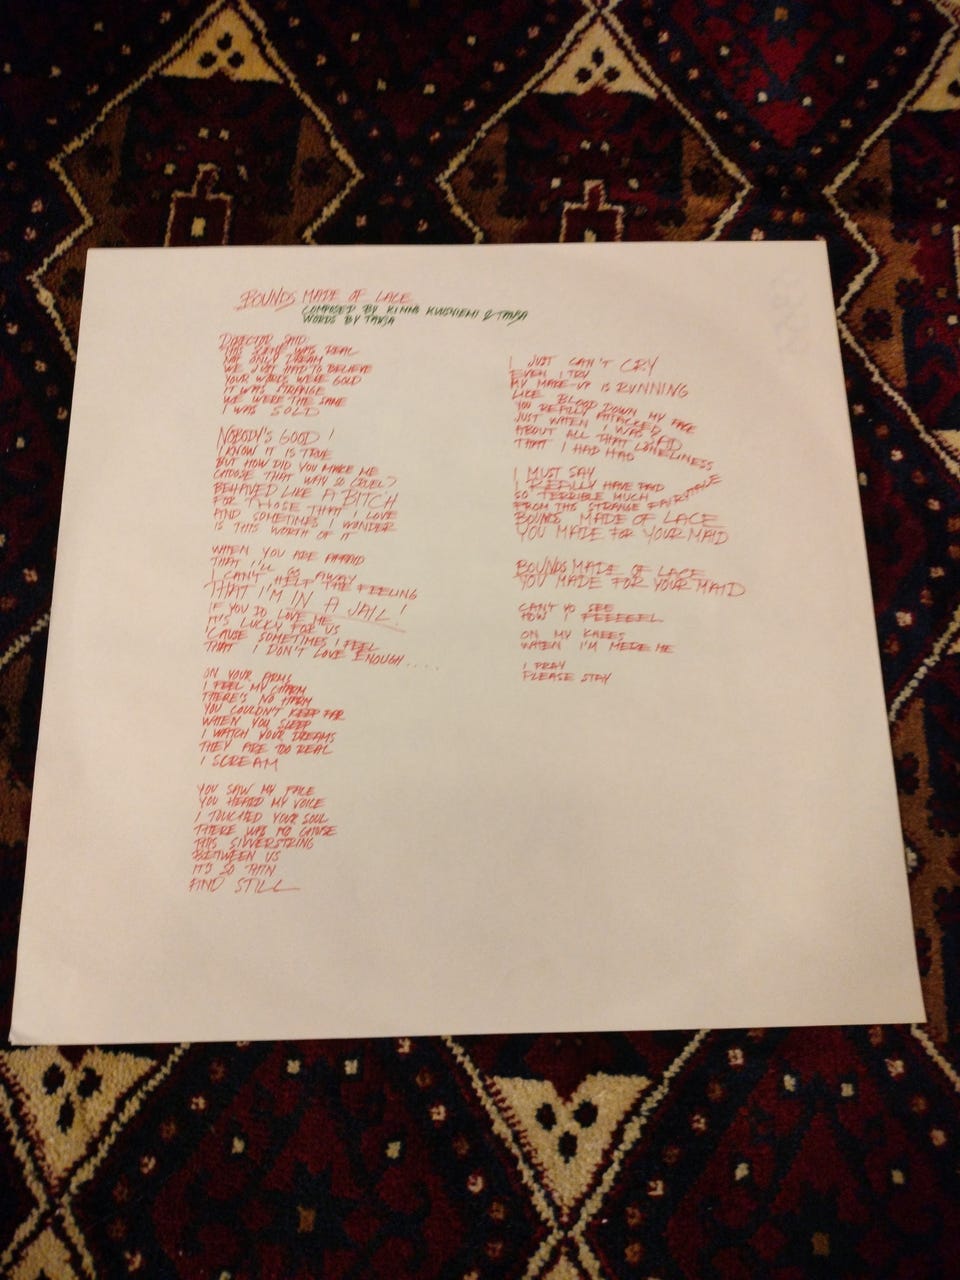 BOUNDS MADE OF LACE
COMPOSED BY KIMMO KUUSNIEMI & TANJA
WORDS BY TANJA
DIRECTOR SAID
THIS SCENE WAS REAL
WE ONLY DREAM
WE JUST HAD TO BELIEVE
YOUR WORDS WERE GOLD
IT WAS STRANGE
WE WERE THE SAME
I WAS SOLD
NOBODY'S GOOD !
I KNOW IT IS TRUE
BUT HOW DID YOU MAKE ME
CHOOSE THAT WAY SO CRUEL?
BEHAVED LIKE A BITCH
FOR THOSE THAT I LOVE
AND SOMETIMES I WONDER
IS THIS WORTH OF IT
WHEN YOU ARE AFRAID
THAT I'LL GO AWAY
I CAN'T HELP THE FEELING
THAT I'M IN A JAIL !
IF YOU DO LOVE ME
IT'S LUCKY FOR US
'CAUSE SOMETIMES I FEEL
THAT I DON'T LOVE ENOUGH....
ON YOUR ARMS
I FEEL MY CHARM
THERE'S NO HARM
YOU COULDN'T KEEP FAR
WHEN YOU SLEEP
I WATCH YOUR DREAMS
THEY ARE TOO REAL
I SCREAM
YOU SAW MY FACE
YOU HEARD MY VOICE
I TOUCHED YOUR SOUL
THERE WAS NO CHOISE
THIS SILVERSTRING
BETWEEN US
IT'S SO THIN
AND STILL
I JUST CAN'T CRY
EVEN I TRY
MY MAKE-UP IS RUNNING
LIKE BLOOD DOWN MY FACE
YOU REALLY ATTACKED
JUST WHEN I WAS SAD
ABOUT ALL THAT LONELINESS
THAT I HAD HAD
I MUST SAY
I REALLY HAVE PAID
SO TERRIBLE MUCH
FROM THIS STRANGE FAIRYTALE
BOUNDS MADE OF LACE
YOU MADE FOR YOUR MAID
BOUNDS MADE OF LACE
YOU MADE FOR YOUR MAID
CAN'T YO SEE
HOW I FEEEEEL
ON MY KNEES
WHEN I'M MERE ME
I PRAY
PLEASE STAY